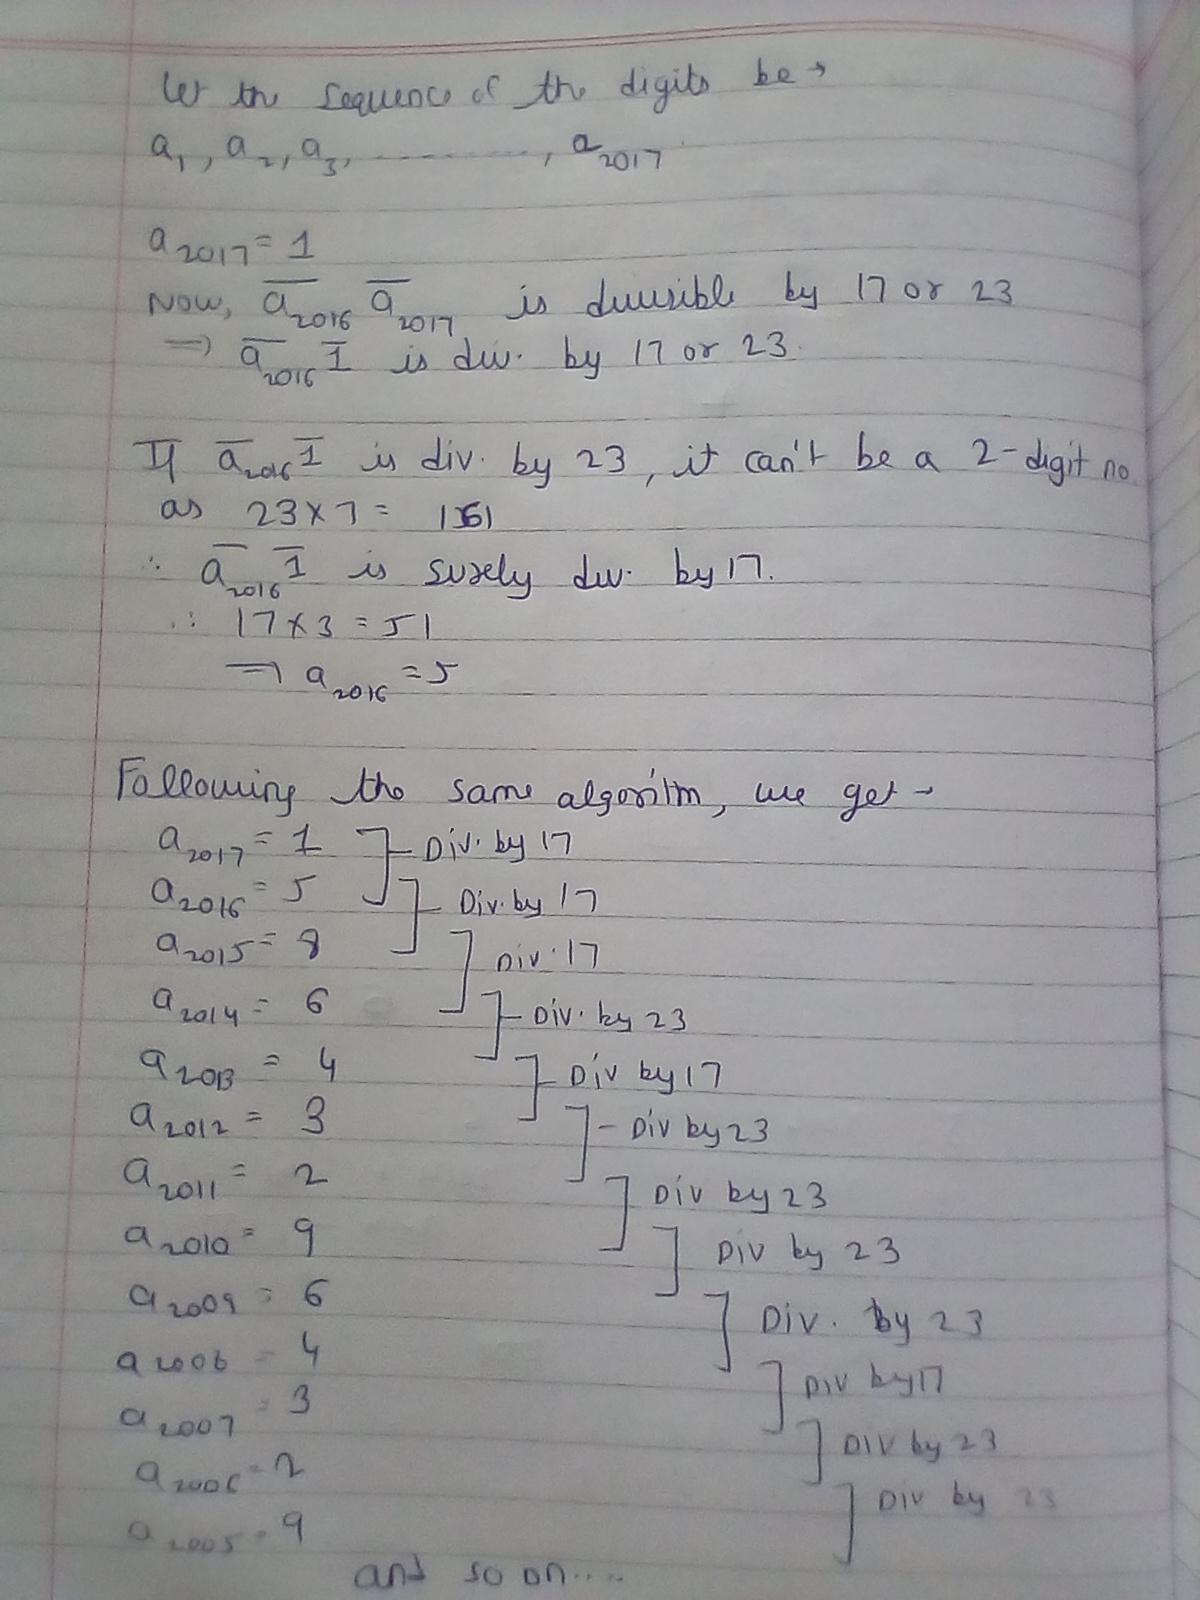 Let the sequence of the digits be →
a₁, a₂, a₃, ------------, a₂₀₁₇
a₂₀₁₇ = 1
Now, a̅₂₀₁₆ a̅₂₀₁₇ is divisible by 17 or 23
⇒ a̅₂₀₁₆ 1̅ is div. by 17 or 23.
If a̅₂₀₁₆ 1̅ is div. by 23, it can't be a 2-digit no.
as 23 × 7 = 161
∴ a̅₂₀₁₆ 1̅ is surely div. by 17.
∴ 17 × 3 = 51
⇒ a₂₀₁₆ = 5
Following the same algorithm, we get →
a₂₀₁₇ = 1 Div. by 17
a₂₀₁₆ = 5 Div. by 17
a₂₀₁₅ = 8 Div. 17
a₂₀₁₄ = 6 Div. by 23
a₂₀₁₃ = 4 Div by 17
a₂₀₁₂ = 3 - Div by 23
a₂₀₁₁ = 2 Div by 23
a₂₀₁₀ = 9 Div by 23
a₂₀₀₉ = 6 Div. by 23
a₂₀₀₈ = 4 Div by 17
a₂₀₀₇ = 3 Div by 23
a₂₀₀₆ = 2 Div by 23
a₂₀₀₅ = 9
and so on....